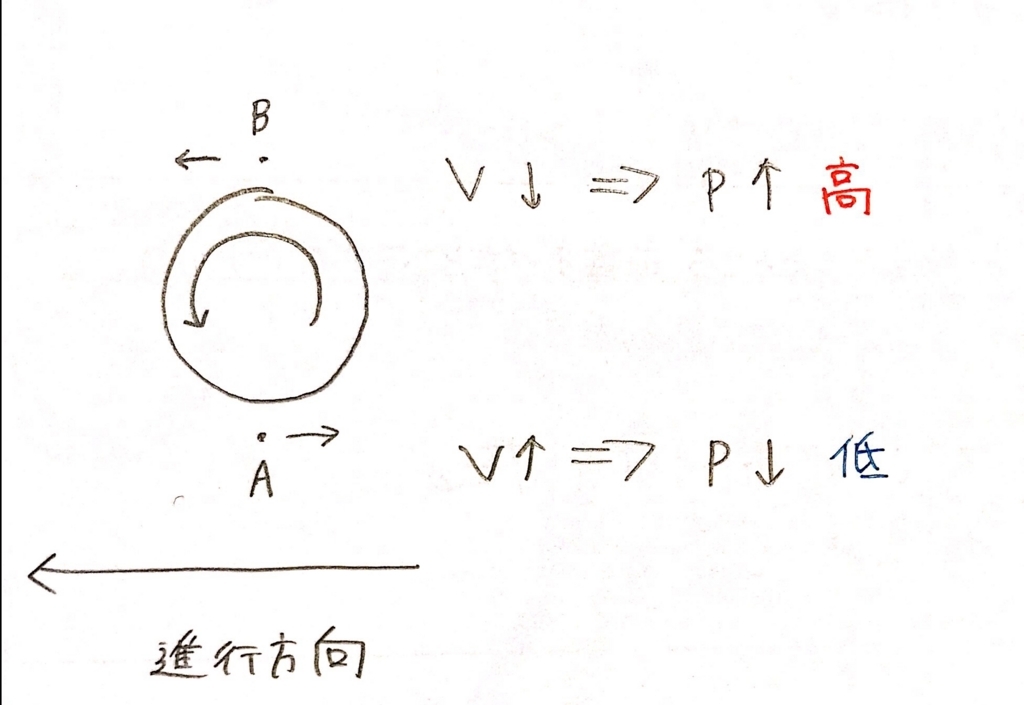 B
V ↓ => P ↑ 高
V ↑ => P ↓ 低
A
進行方向